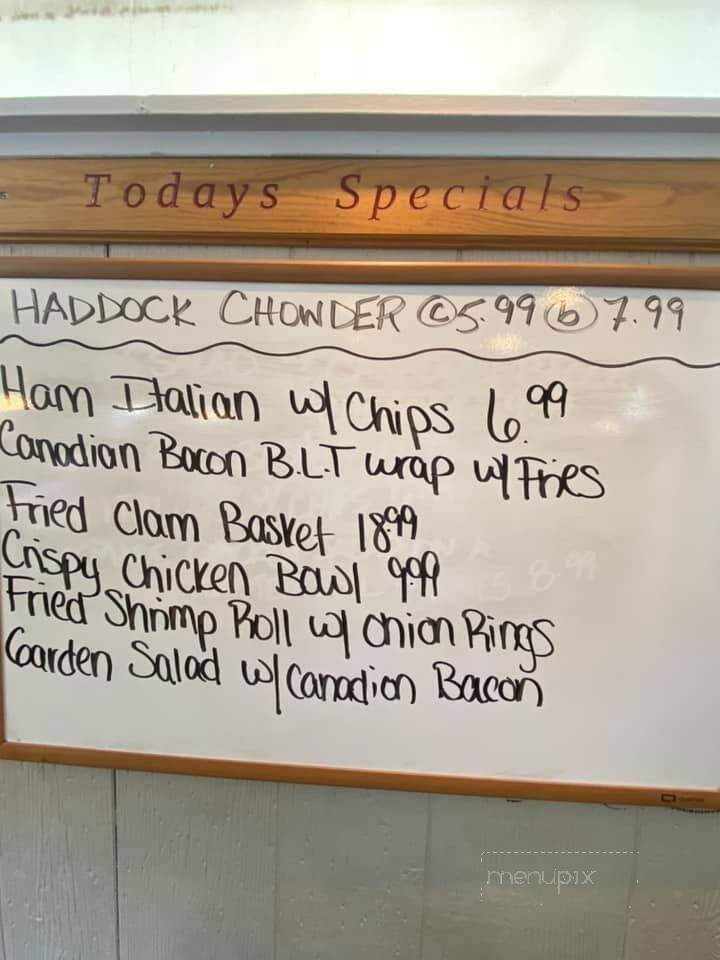 Todays Specials
HADDOCK CHOWDER ©5.99 ⓑ 7.99
Ham Italian w/ Chips 6.99
Canadian Bacon B.L.T wrap w/ Fries
Fried Clam Basket 18.99
Crispy Chicken Bowl 9.99
Fried Shrimp Roll w/ Onion Rings
Garden Salad w/ Canadion Bacon
menupix